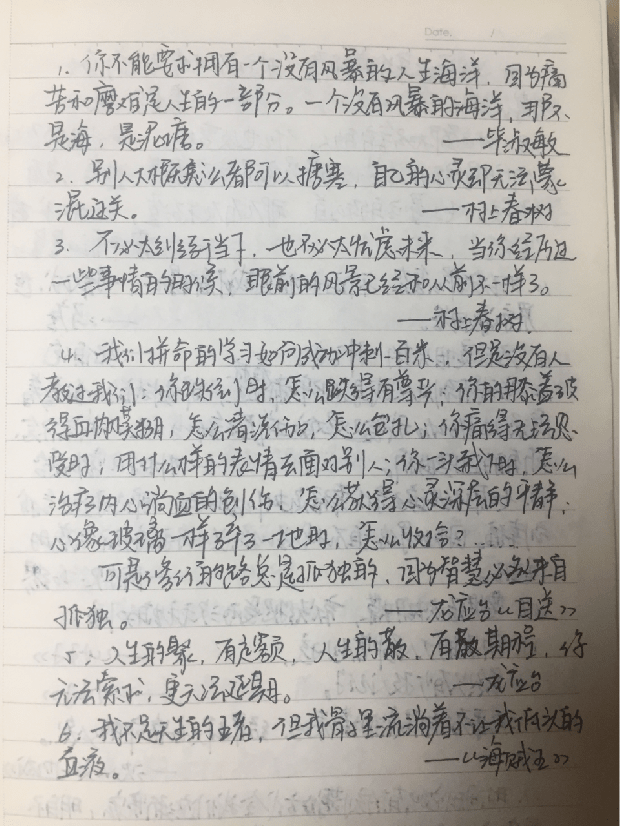 Date.      /
1. 你不能要求拥有一个没有风暴的人生海洋，因为痛
苦和磨难是人生的一部分。一个没有风暴的海洋，那不
是海，是泥塘。 ——毕淑敏
2. 别人大概怎么看都可以搪塞，自己的心灵却无法蒙
混过关。 ——村上春树
3. 不必太纠结于当下，也不必太忧虑未来，当你经历过
一些事情的时候，眼前的风景已经和从前不一样了。
——村上春树
4. 我们拼命的学习如何成功冲刺一百米，但是没有人
教过我们：你跌倒时，怎么跌得有尊严；你的膝盖破
得血肉模糊时，怎么清洗伤口，怎么包扎；你痛得无法忍
受时，用什么样的表情去面对别人；你一头栽下时，怎么
治疗内心淌血的创伤，怎么获得心灵深层的平静；
心像玻璃一样碎了一地时，怎么收拾？……
可是修行的路总是孤独的，因为智慧必然来自
孤独。 ——龙应台《目送》
5. 人生的聚，有定额，人生的散，有散期程，你
无法索求，更无法延期。 ——龙应台
6. 我不是天生的王者，但我骨子里流淌着不让我低头的
血液。 ——《海贼王》